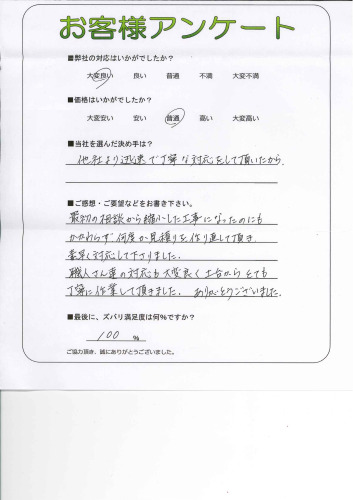 お客様アンケート
■弊社の対応はいかがでしたか?
大変良い 良い 普通 不満 大変不満
■価格はいかがでしたか?
大変安い 安い 普通 高い 大変高い
■当社を選んだ決め手は?
他社より迅速で丁寧な対応をして頂いたから
■ご感想・ご要望などをお書き下さい。
最初の相談から縮小した工事になったのにも
かかわらず何度か見積りを作り直して頂き
素早く対応して下さりました。
職人さん達の対応も大変良く土台からとても
丁寧に作業して頂きました。ありがとうございました。
■最後に、ズバリ満足度は何%ですか?
100 %
ご協力頂き、誠にありがとうございました。